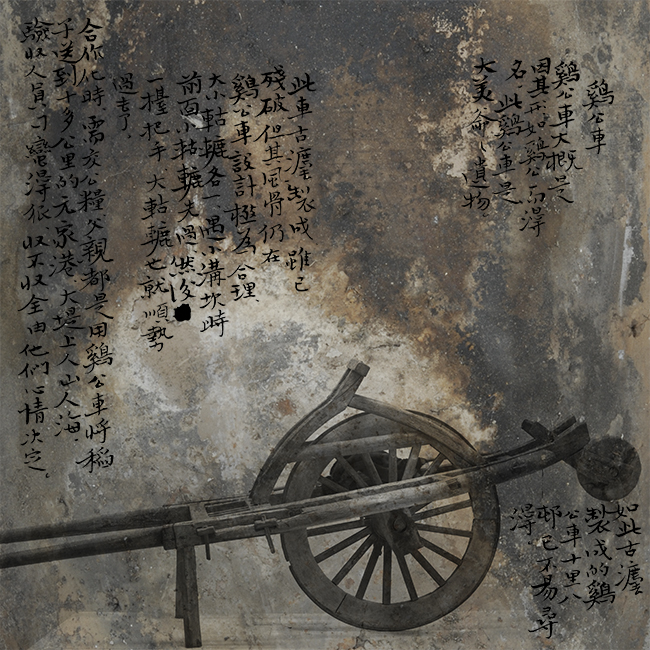 鷄公車
鷄公車大概是
因其形如鷄公而得
名,此鷄公車是
大美侖、遺物
此車古灋製成雖已
殘破但其風骨仍在
鷄公車設計極為合理、
大小轱轆各一遇小溝坎時
前面小轱轆先過然後
一擡把手大轱轆也就順勢
過去了。
合作化時,需交公糧父親都是用鷄公車將稻
子送到十多公里的元家港,大堤上人山人海、
驗收人員可蠻得狠、收不收全由他們心情決定。
如此古灋
製成的鷄
公車十里八
邨已不易尋
得